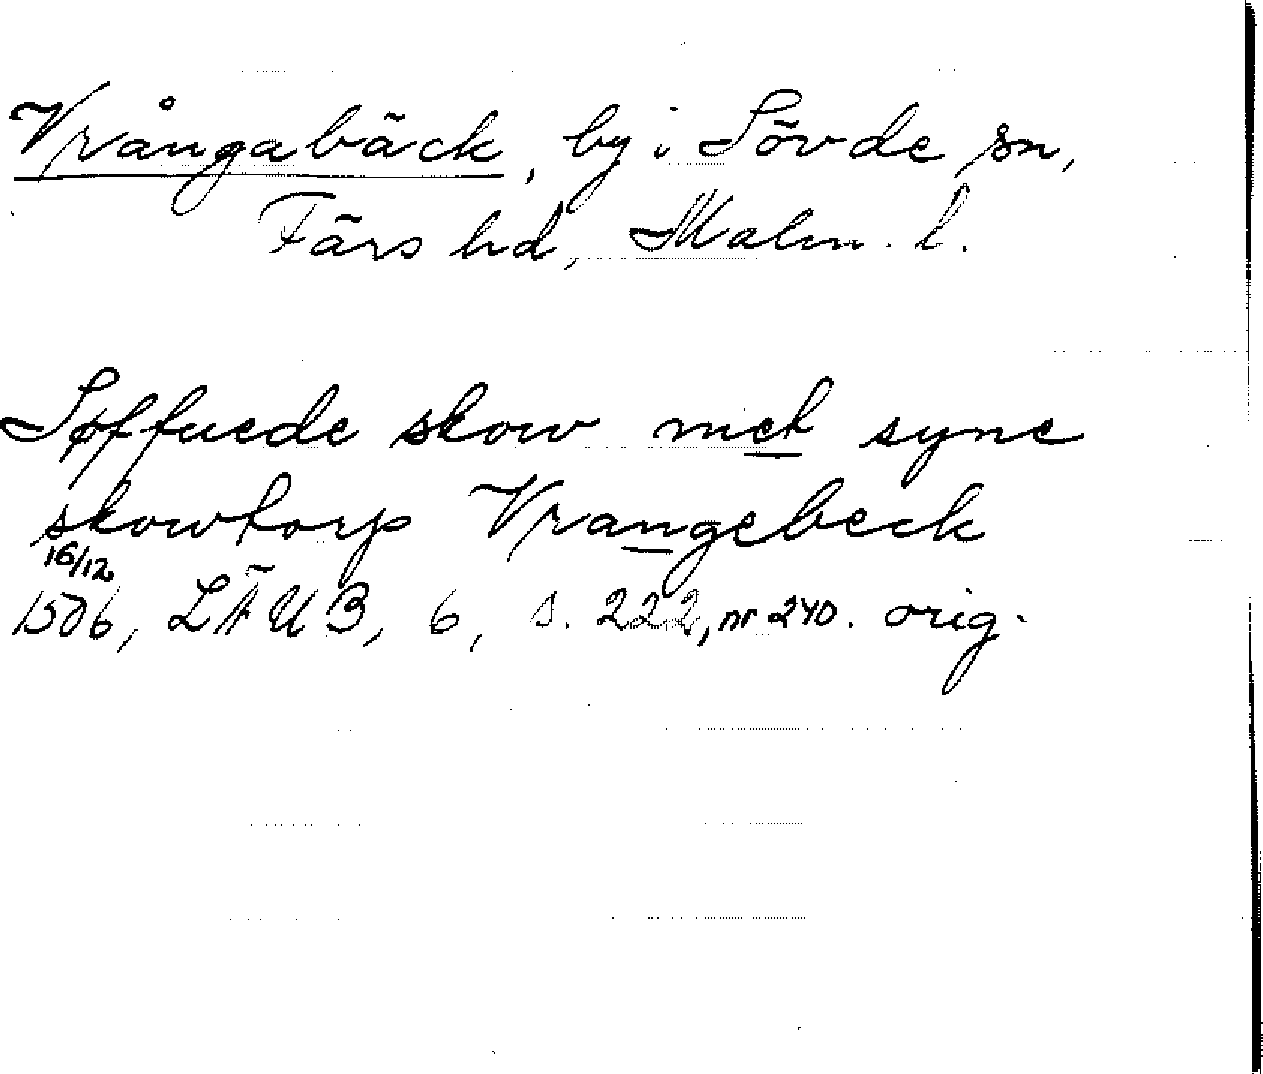 Vrångabäck, by i Sövde sn,
Färs hd, Malm. l.
Søffuede skow met syne
skowtorp Vrangebeck
16/12
1506, LÄUB, 6, s. 222, nr 240. orig.